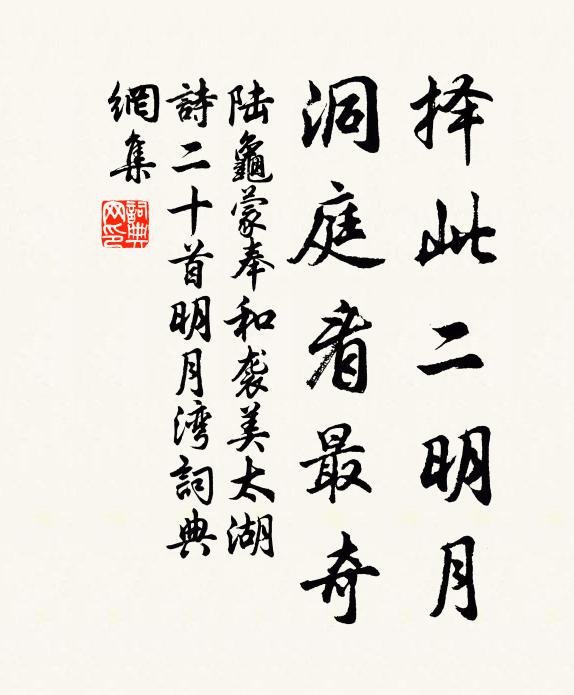 择此二明月
洞庭看最奇
陆龜蒙奉和袭美太湖
詩二十首明月湾詞典
網集
詞典
网印